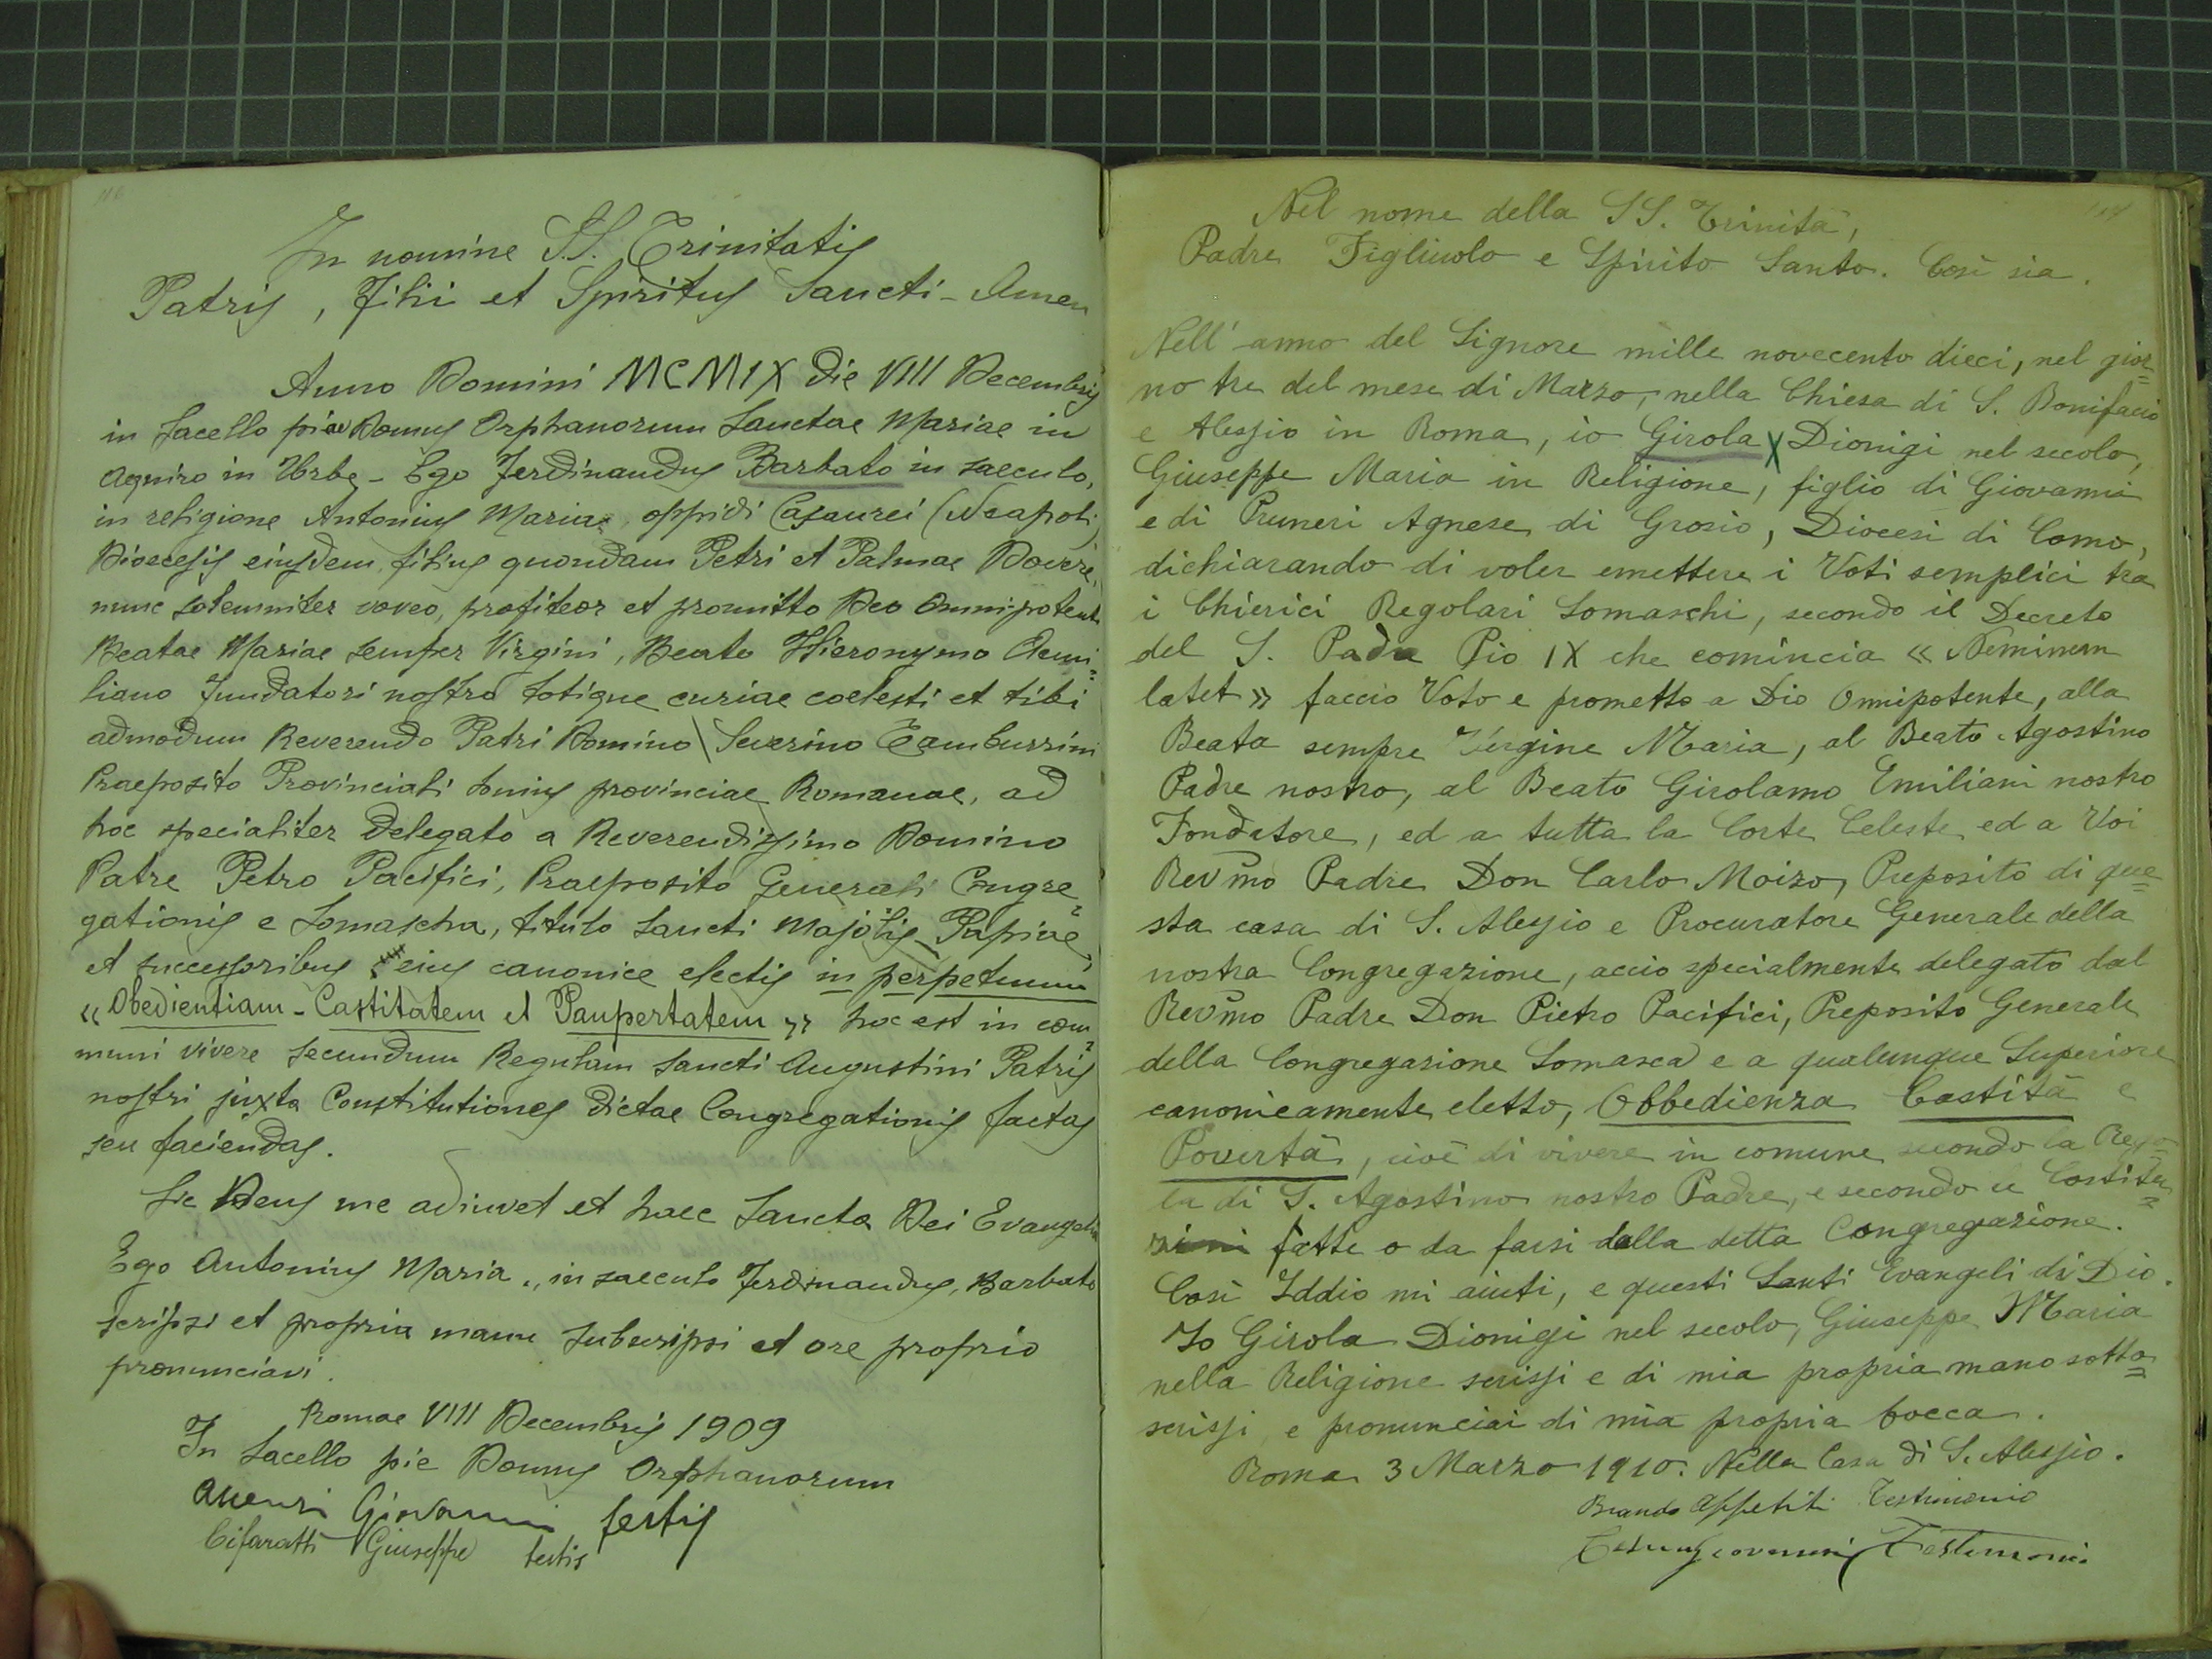 116
In nomine S.S. Trinitatis
Patris, Filii et Spiritus Sancti - Amen
Anno Domini MCMIX die VIII Decembris
in sacello piae Domus Orphanorum Sanctae Mariae in
Aquiro in Urbe - Ego Ferdinandus Barbato in saeculo,
in religione Antonius Maria, oppidi Casaurei (Neapoli)
Dioecesis eiusdem, filius quondam Petri et Palmae
nunc solemniter voveo, profiteor et promitto Deo Omnipotenti
Beatae Mariae semper Virgini, Beato Hieronymo Aemi=
liano Fundatori nostro totique curiae coelesti et tibi
admodum Reverendo Patri Domino Severino Tamburrini
Praeposito Provinciali huius provinciae Romanae, ad
hoc specialiter delegato a Reverendissimo Domino
Patre Petro Pacifici, Praeposito Generali Congre=
gationis e Somascha, titulo Sancti Majolis Papiae,
et successoribus eius canonice electis in perpetuum
« Obedientiam - Castitatem et Paupertatem » hoc est in com=
muni vivere secundum Regulam Sancti Augustini Patris
nostri juxta Constitutiones dictae Congregationis factas
seu faciendas.
Sic Deus me adiuvet et haec Sancta Dei Evangelia
Ego Antonius Maria, in saeculo Ferdinandus, Barbato
scripsi et propria manu subscripsi et ore proprio
pronunciavi.
Romae VIII Decembris 1909
In Sacello pie Domus Orphanorum
Giovanni testis
Giuseppe testis
Nel nome della SS. Trinità,
Padre Figliuolo e Spirito Santo. Così sia.
Nell'anno del Signore mille novecento dieci, nel gior=
no tre del mese di Marzo, nella Chiesa di S. Bonifacio
e Alessio in Roma, io Girola X Dionigi nel secolo,
Giuseppe Maria in Religione, figlio di Giovanni
e di Pruneri Agnese di Grosio, Diocesi di Como,
dichiarando di voler emettere i Voti semplici tra
i Chierici Regolari Somaschi, secondo il Decreto
del S. Padre Pio IX che comincia « Neminem
latet » faccio Voto e prometto a Dio Omnipotente, alla
Beata sempre Vergine Maria, al Beato Agostino
Padre nostro, al Beato Girolamo Emiliani nostro
Fondatore, ed a tutta la Corte Celeste, ed a Voi
Revmo Padre Don Carlo Moizo, Preposito di que=
sta casa di S. Alessio e Procuratore Generale della
nostra Congregazione, acciò specialmente delegato dal
Revmo Padre Don Pietro Pacifici, Preposito Generale
della Congregazione Somasca e a qualunque Superiore
canonicamente eletto, Obbedienza Castità e
Povertà, cioè di vivere in comune secondo la Rego=
la di S. Agostino nostro Padre, e secondo le Costitu=
zioni fatte o da farsi dalla detta Congregazione.
Così Iddio mi aiuti, e questi Santi Evangeli di Dio.
Io Girola Dionigi nel secolo, Giuseppe Maria
nella Religione scrissi e di mia propria mano sotto=
scrissi e pronunciai di mia propria bocca.
Roma 3 Marzo 1910. Nella Casa di S. Alessio.
Appetiti Testimonio
Testimonio